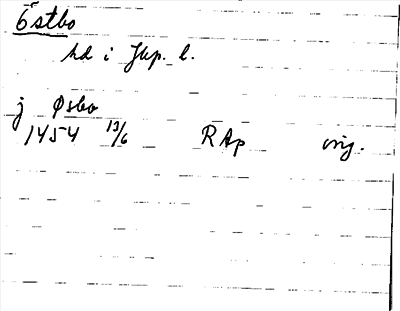 Östbo
hd i Jkp. l.
j Øsbo
1454 13/6 RAp orig.